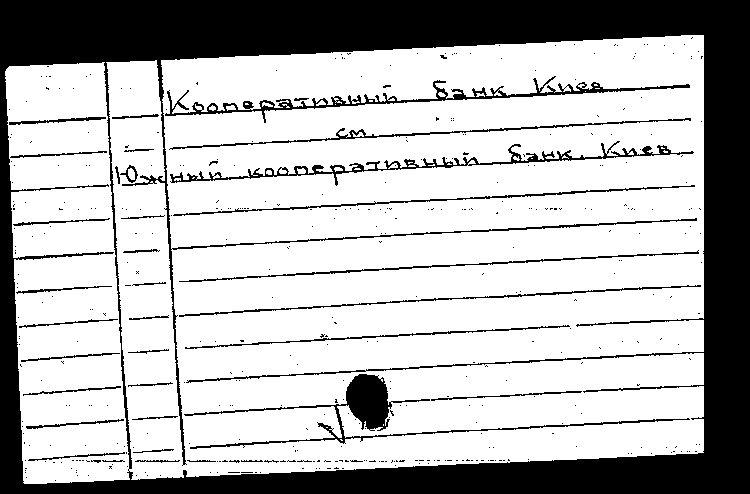 Кооперативный банк Киев
см.
Южный кооперативный банк. Киев